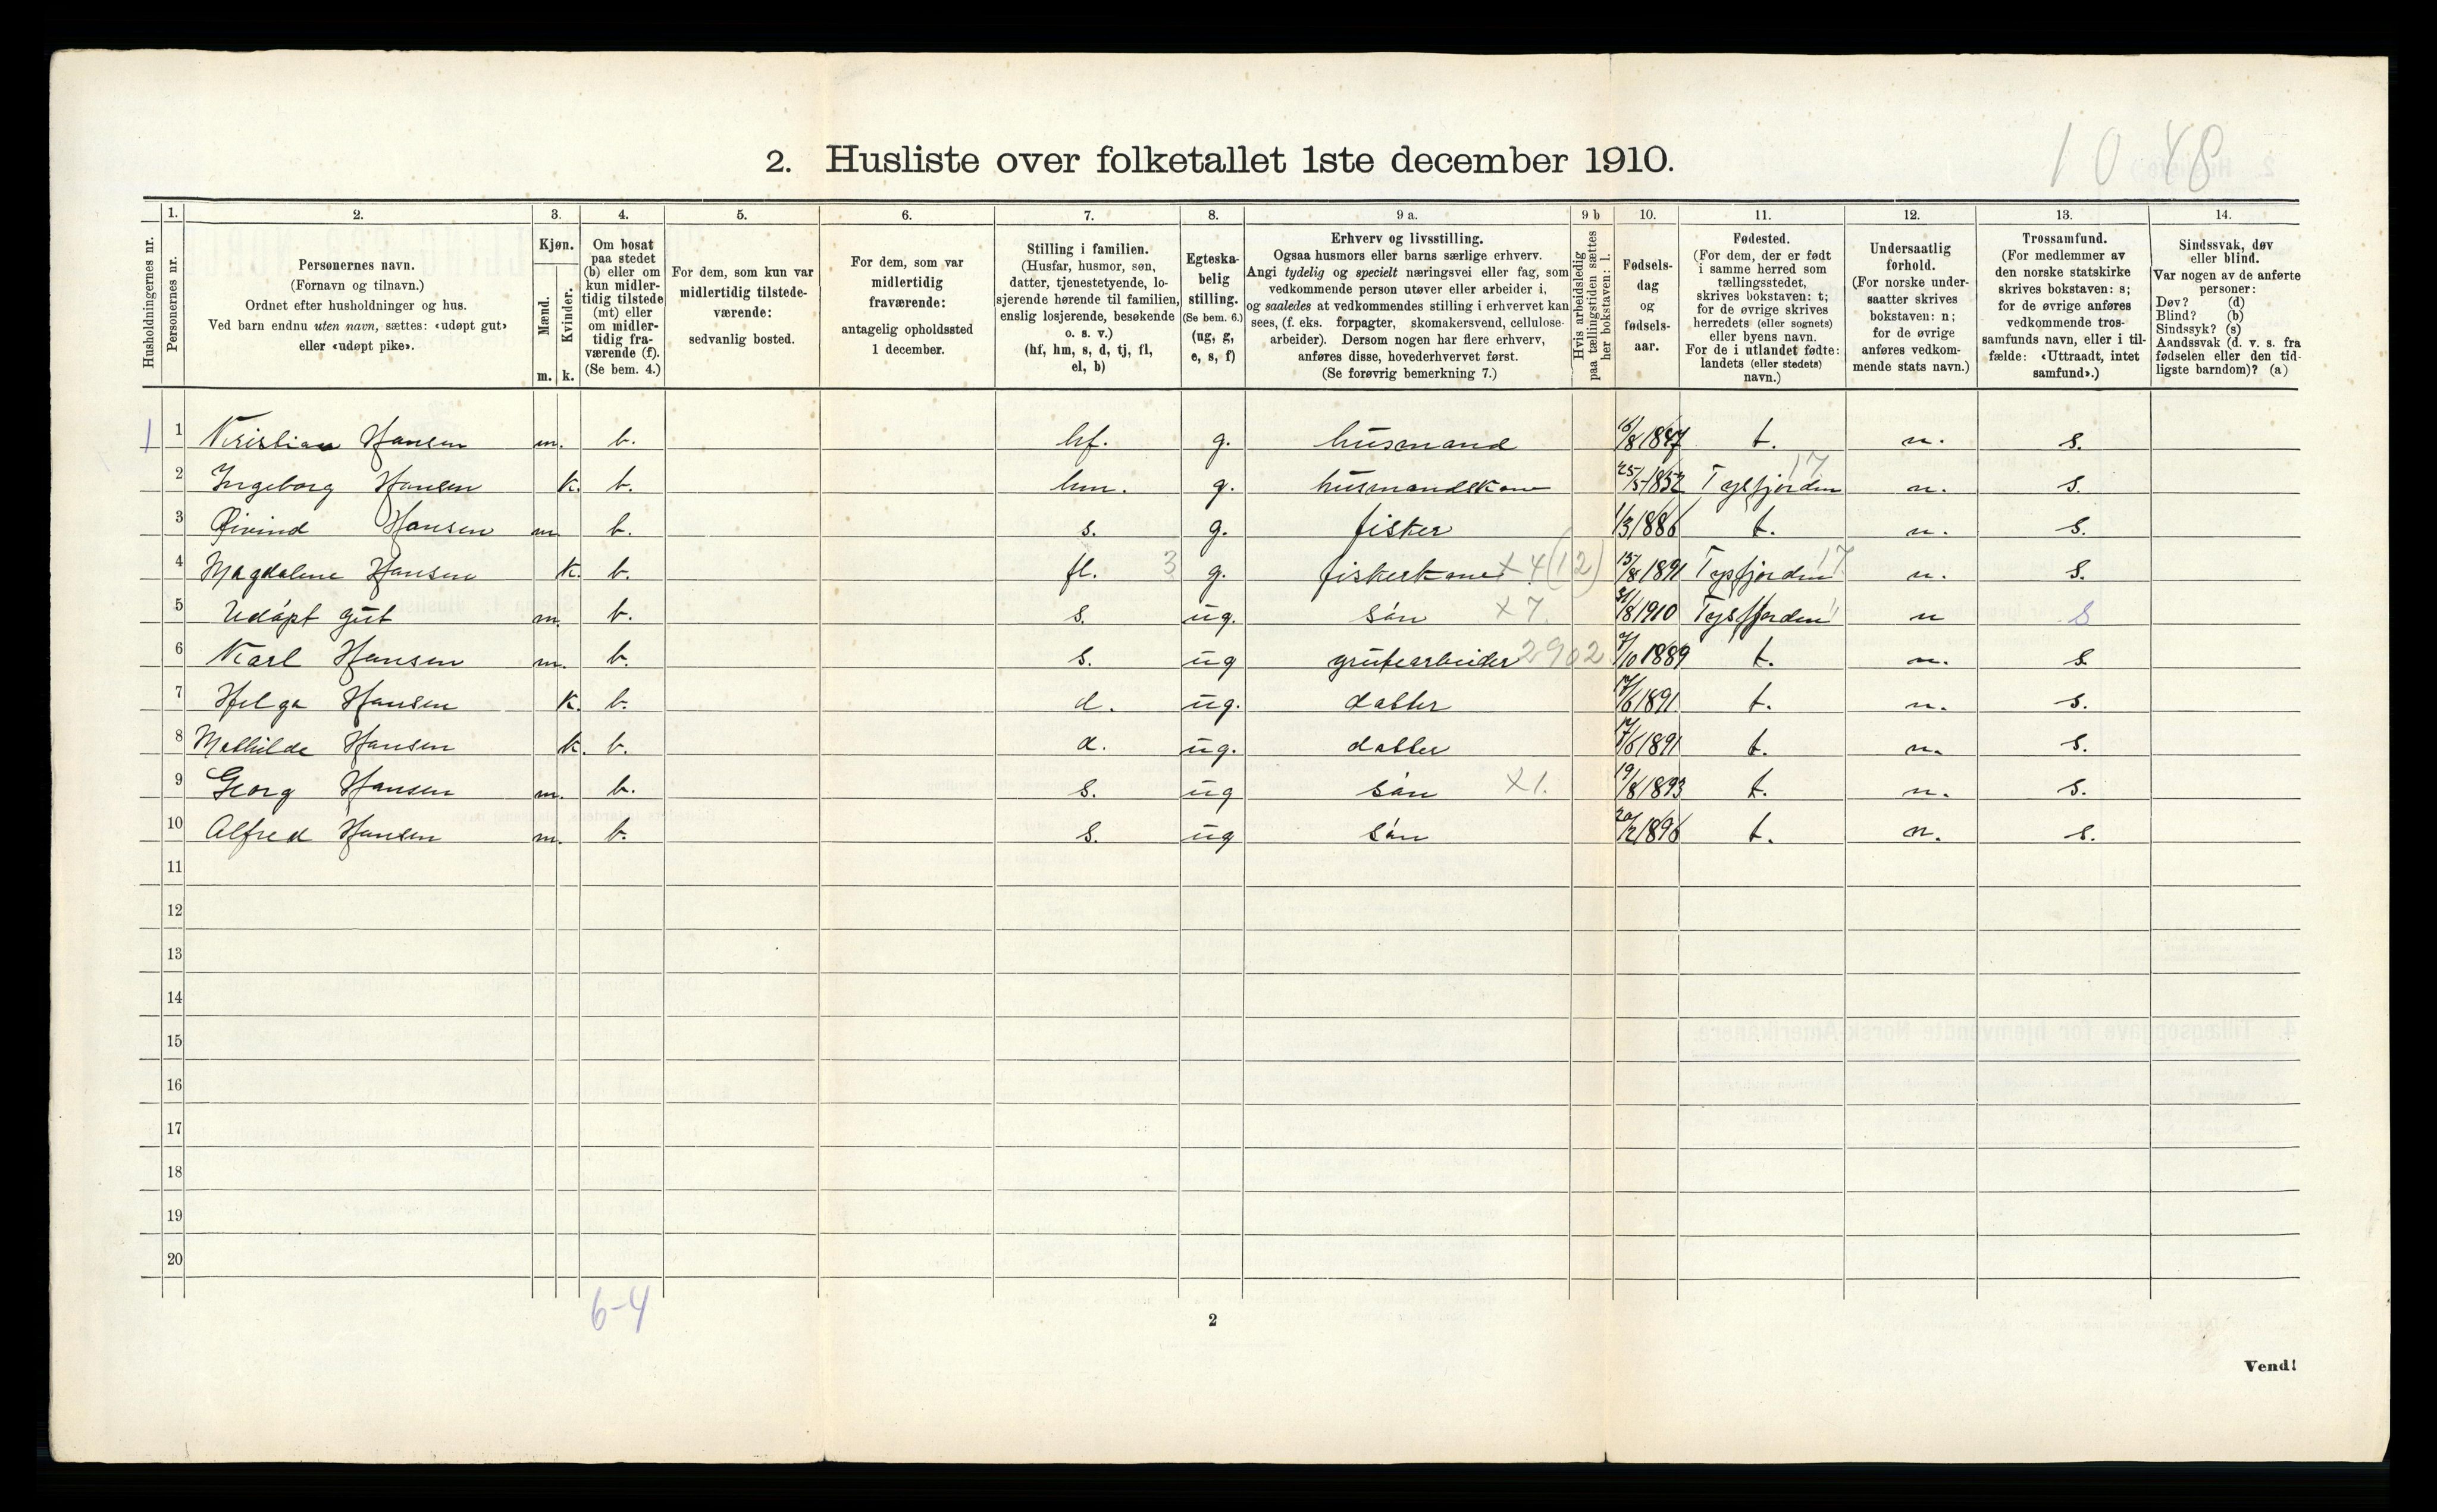 10 48
2. Husliste over folketallet 1ste december 1910.
Husholdningernes nr.
1. Personernes nr.
2. Personernes navn. (Fornavn og tilnavn.) Ordnet efter husholdninger og hus. Ved barn endnu uten navn, sættes: «udøpt gut» eller «udøpt pike».
3. Kjøn. Mænd. m. Kvinder. k.
4. Om bosat paa stedet (b) eller om kun midlertidig tilstede (mt) eller om midlertidig fraværende (f). (Se bem. 4.)
5. For dem, som kun var midlertidig tilstedeværende: sedvanlig bosted.
6. For dem, som var midlertidig fraværende: antagelig opholdssted 1 december.
7. Stilling i familien. (Husfar, husmor, søn, datter, tjenestetyende, losjerende hørende til familien, enslig losjerende, besøkende o. s. v.) (hf, hm, s, d, tj, fl, el, b)
8. Egteskabelig stilling. (Se bem. 6.) (ug, g, e, s, f)
9 a. Erhverv og livsstilling. Ogsaa husmors eller barns særlige erhverv. Angi tydelig og specielt næringsvei eller fag, som vedkommende person utøver eller arbeider i, og saaledes at vedkommendes stilling i erhvervet kan sees, (f. eks. forpagter, skomakersvend, cellulosearbeider). Dersom nogen har flere erhverv, anføres disse, hovederhvervet først. (Se forøvrig bemerkning 7.)
9 b Hvis arbeidsledig paa tællingstiden sættes her bokstaven: l.
10. Fødselsdag og fødselsaar.
11. Fødested. (For dem, der er født i samme herred som tællingsstedet, skrives bokstaven: t; for de øvrige skrives herredets (eller sognets) eller byens navn. For de i utlandet fødte: landets (eller stedets) navn.)
12. Undersaatlig forhold. (For norske undersaatter skrives bokstaven: n; for de øvrige anføres vedkommende stats navn.)
13. Trossamfund. (For medlemmer av den norske statskirke skrives bokstaven: s; for de øvrige anføres vedkommende trossamfunds navn, eller i tilfælde: «Uttraadt, intet samfund».)
14. Sindssvak, døv eller blind. Var nogen av de anførte personer: Døv? (d) Blind? (b) Sindssyk? (s) Aandssvak (d. v. s. fra fødselen eller den tidligste barndom)? (a)
1 1 Kristian Hansen m. b. hf. g. husmand 16/8 1847 t. n. s.
2 Ingeborg Hansen k. b. hm. g. husmandskone 25/5 1852 Tysfjorden 17 n. s.
3 Øivind Hansen m b. s. g. fisker 1/3 1886 t. n. s.
4 Magdalene Hansen k. b. fl. 3 g. fiskerkone x 4 (12) 15/8 1891 Tysfjorden 17 n. s.
5 Udöpt gut m. b. s. ug. sön x 7. 31/8 1910 Tysfjorden n s
6 Karl Hansen m. b. s. ug grubearbeider 2902 7/10 1889 t. n. s
7 Helga Hansen k. b. d. ug. datter 17/6 1891 t. n. s.
8 Mathilde Hansen k. b. d. ug. datter 17/6 1891 t. n. s.
9 Georg Hansen m. b. s. ug sön x1. 19/8 1893 t. n. s.
10 Alfred Hansen m. b. s. ug sön 20/2 1896 t. n. s.
11
12
13
14
15
16
17
18
19
20
6-4
2
Vend!